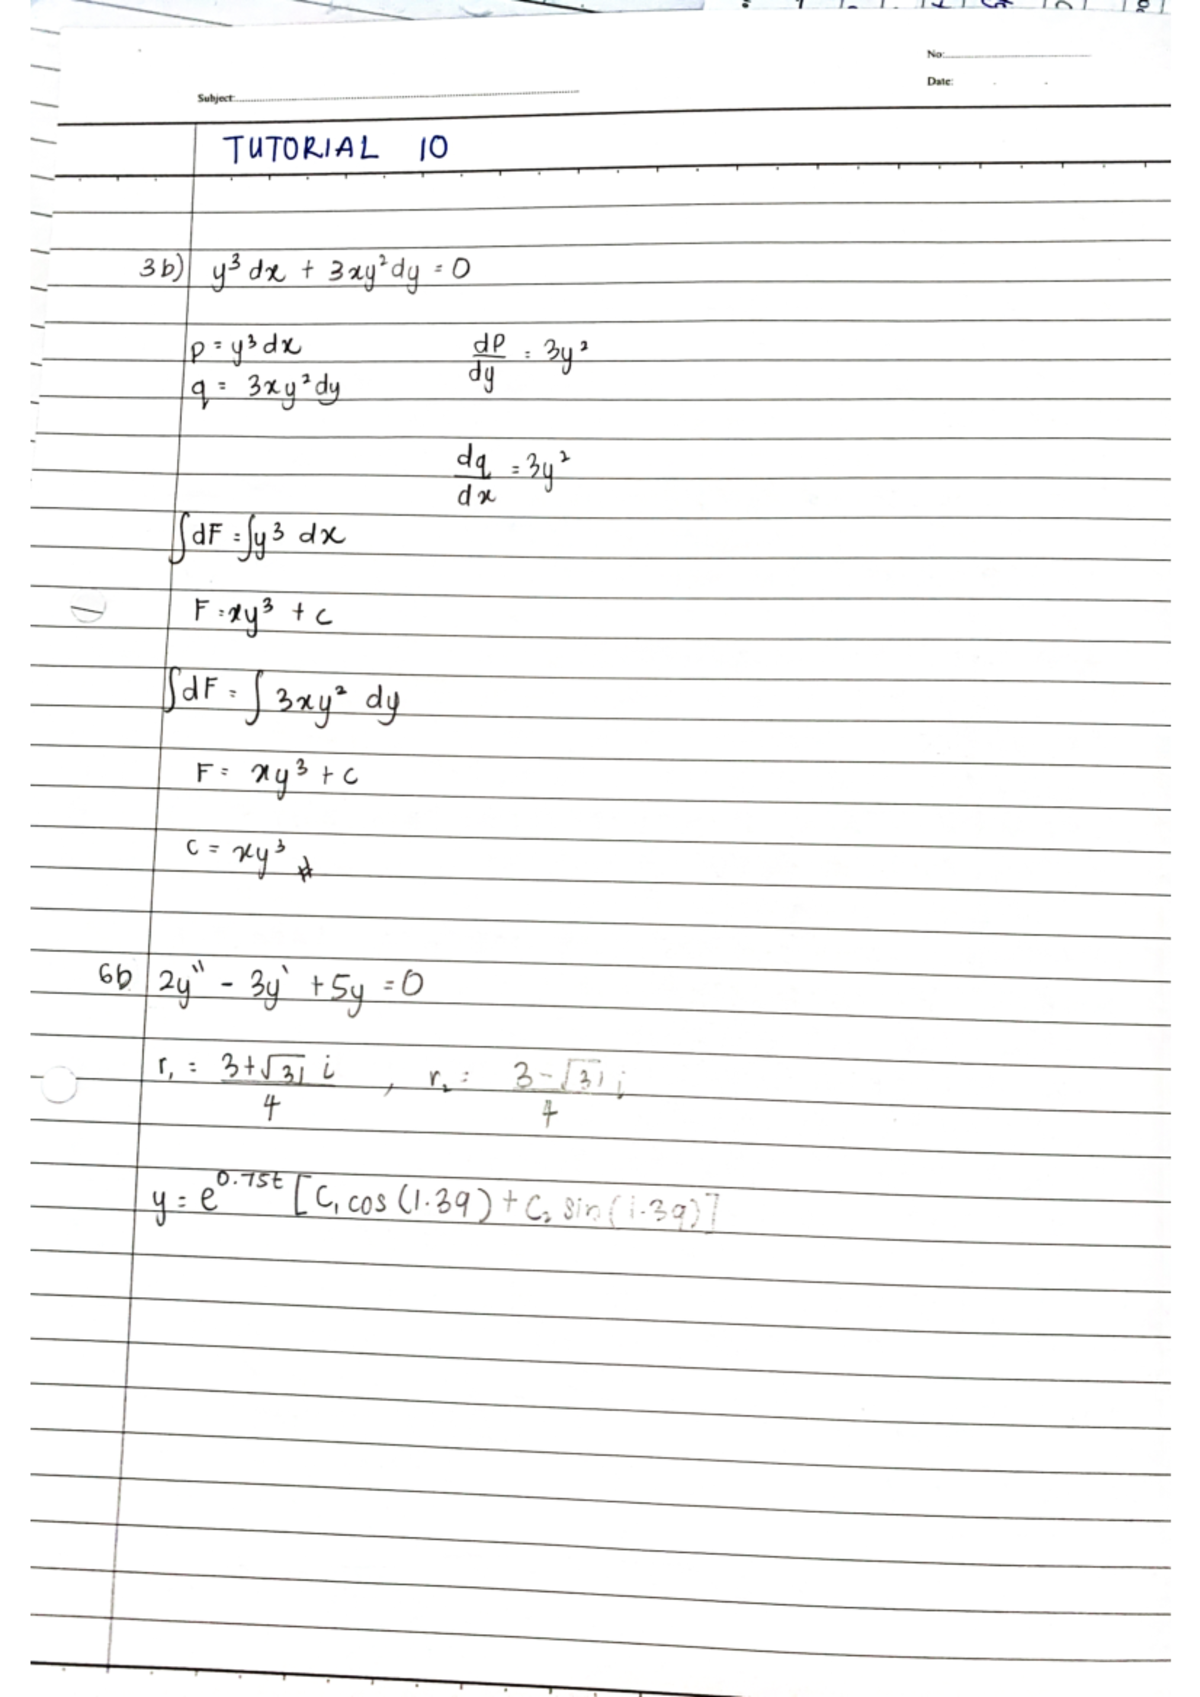 No:
Date:
Subject:
TUTORIAL 10
3b) y³ dx + 3xy² dy = 0
p = y³ dx dp/dy = 3y²
q = 3xy² dy
dq/dx = 3y²
∫dF = ∫y³ dx
F = xy³ + c
∫dF = ∫ 3xy² dy
F = xy³ + c
c = xy³
6b 2y'' - 3y' + 5y = 0
r₁ = (3+√31 i)/4 , r₂ = (3-√31 i)/4
y = e^0.75t [C₁ cos (1.39) + C₂ sin (1.39)]